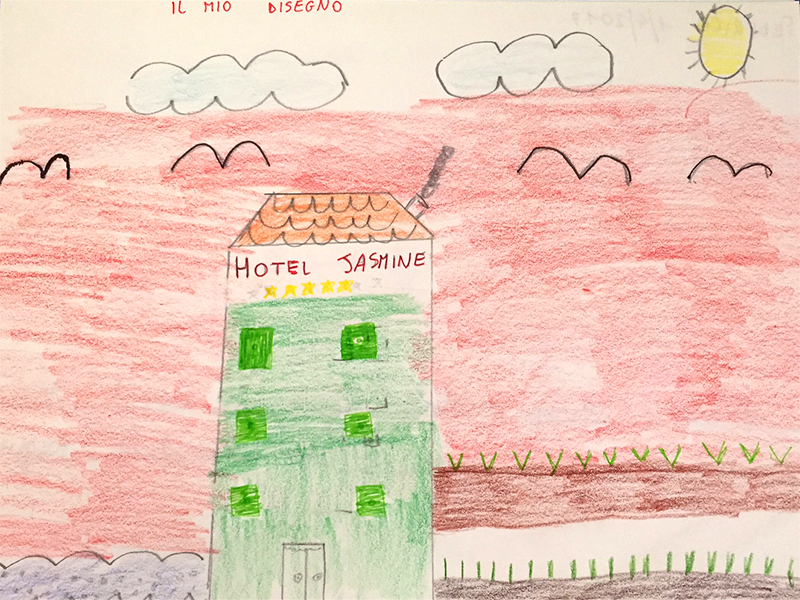 IL MIO DISEGNO
HOTEL JASMINE